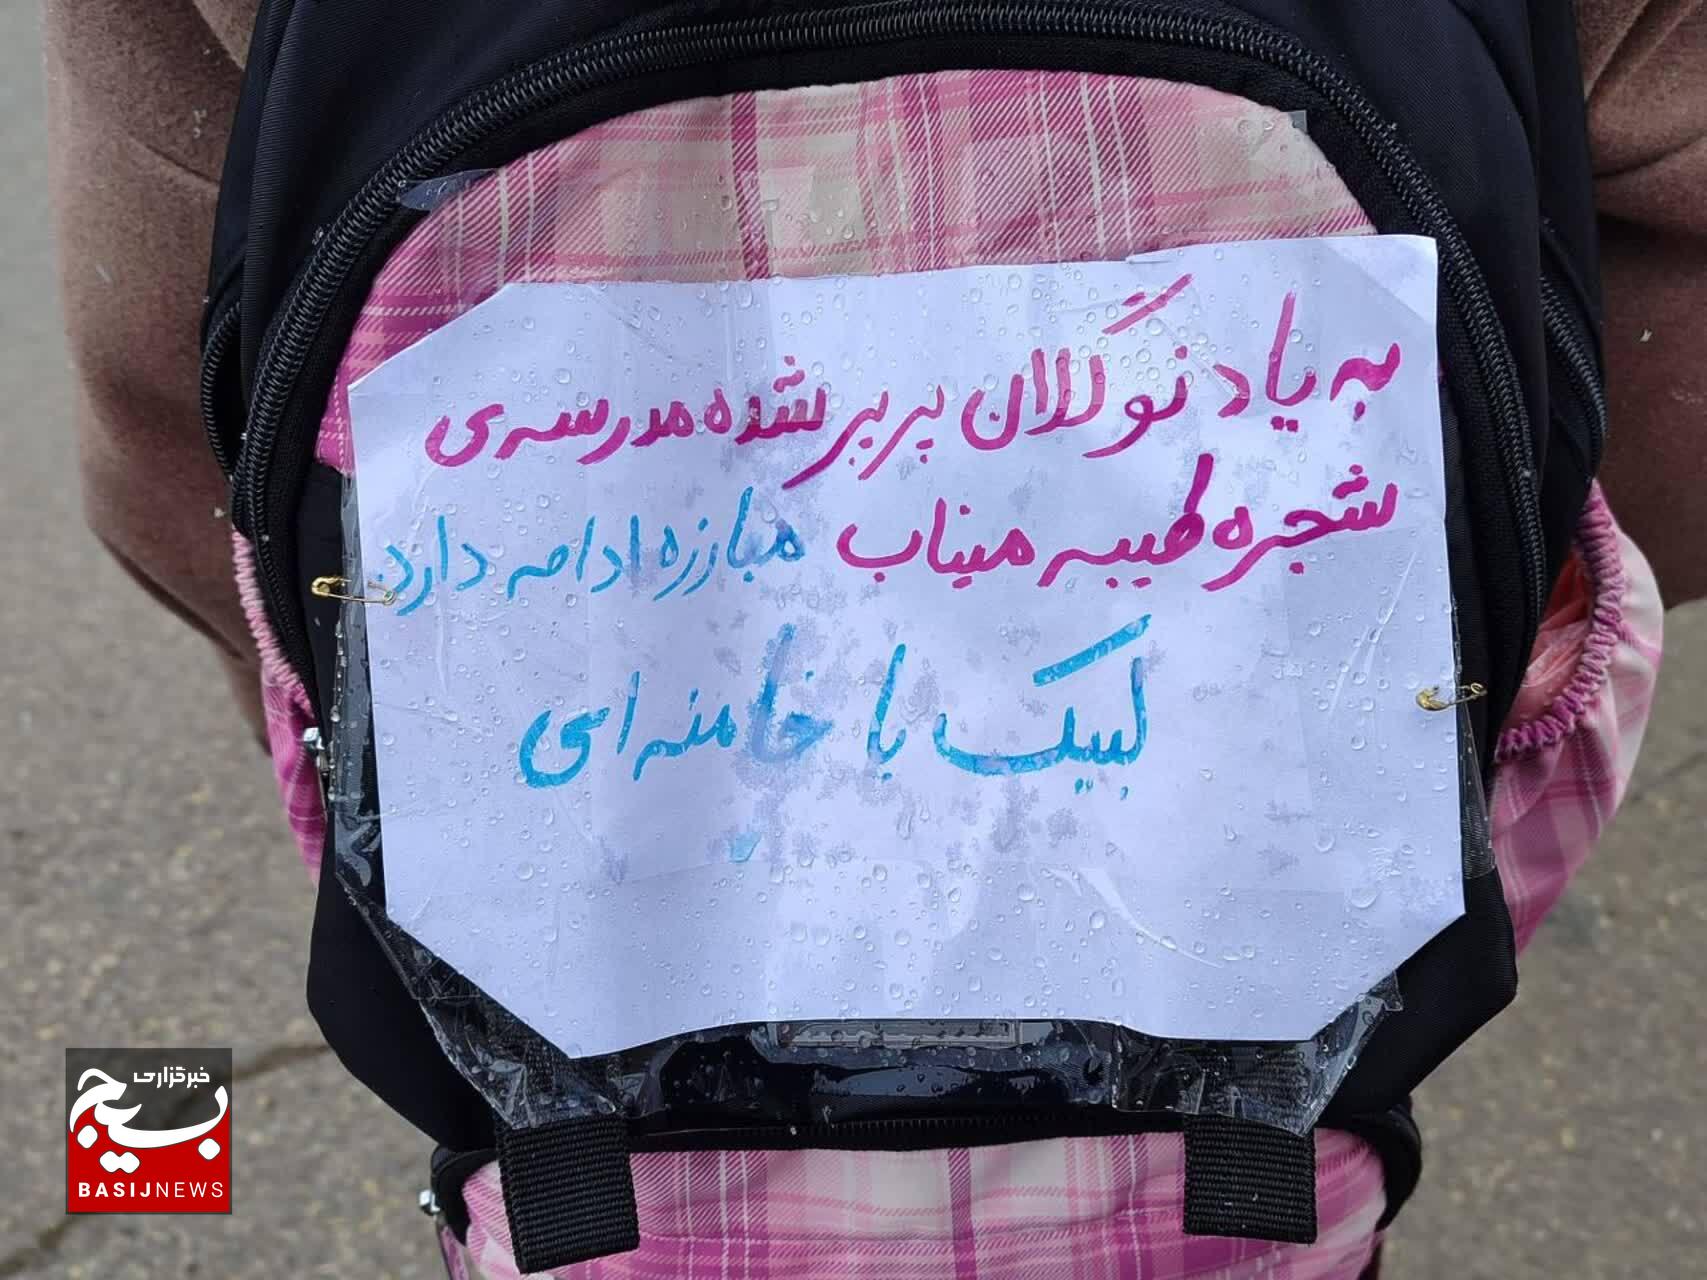 به یاد نوگلان پرپر شده مدرسه‌ی
شجره طیبه میناب مبارزه ادامه دارد
لبیک یا خامنه‌ای
خبرگزاری
بسیج
BASIJNEWS